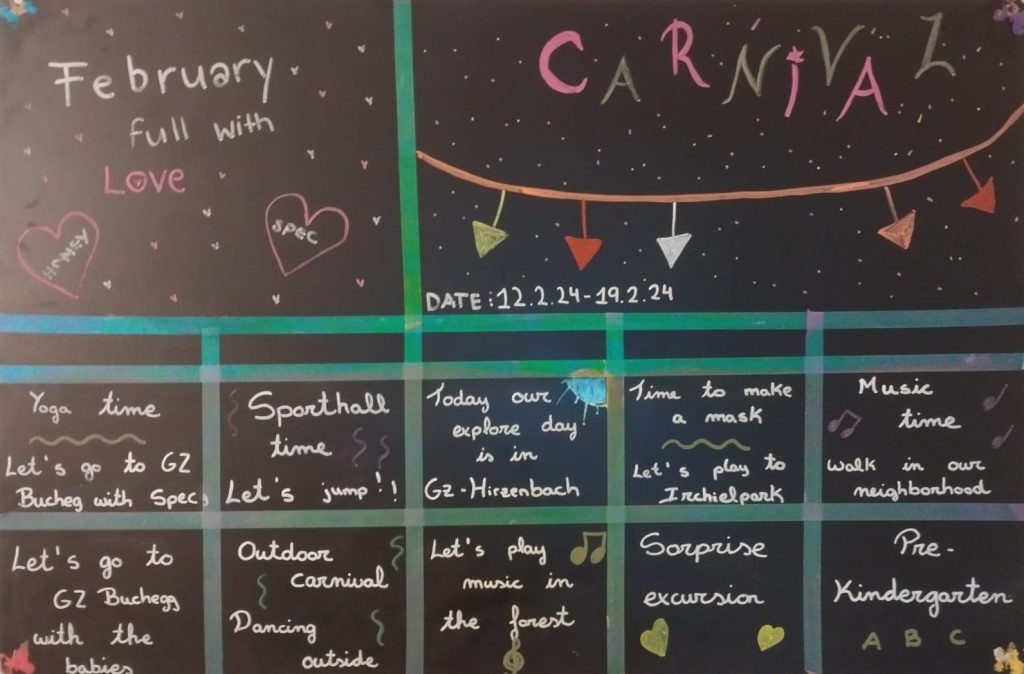 February
full with
LOVE
HONEY
SPEC
CARNiVAL
DATE: 12.2.24-19.2.24
Yoga time
Let's go to GZ
Bucheg with Spec,
Sporthall
time
Let's jump!!
Today our
explore day
is in
GZ-Hirzenbach
Time to make
a mask
Let's play to
Irchielpark
Music
time
walk in our
neighborhood
Let's go to
GZ Buchegg
with the
babies
Outdoor
carnival
Dancing
outside
Let's play
music in
the forest
Sorprise
excursion
Pre-
Kindergarten
A B C